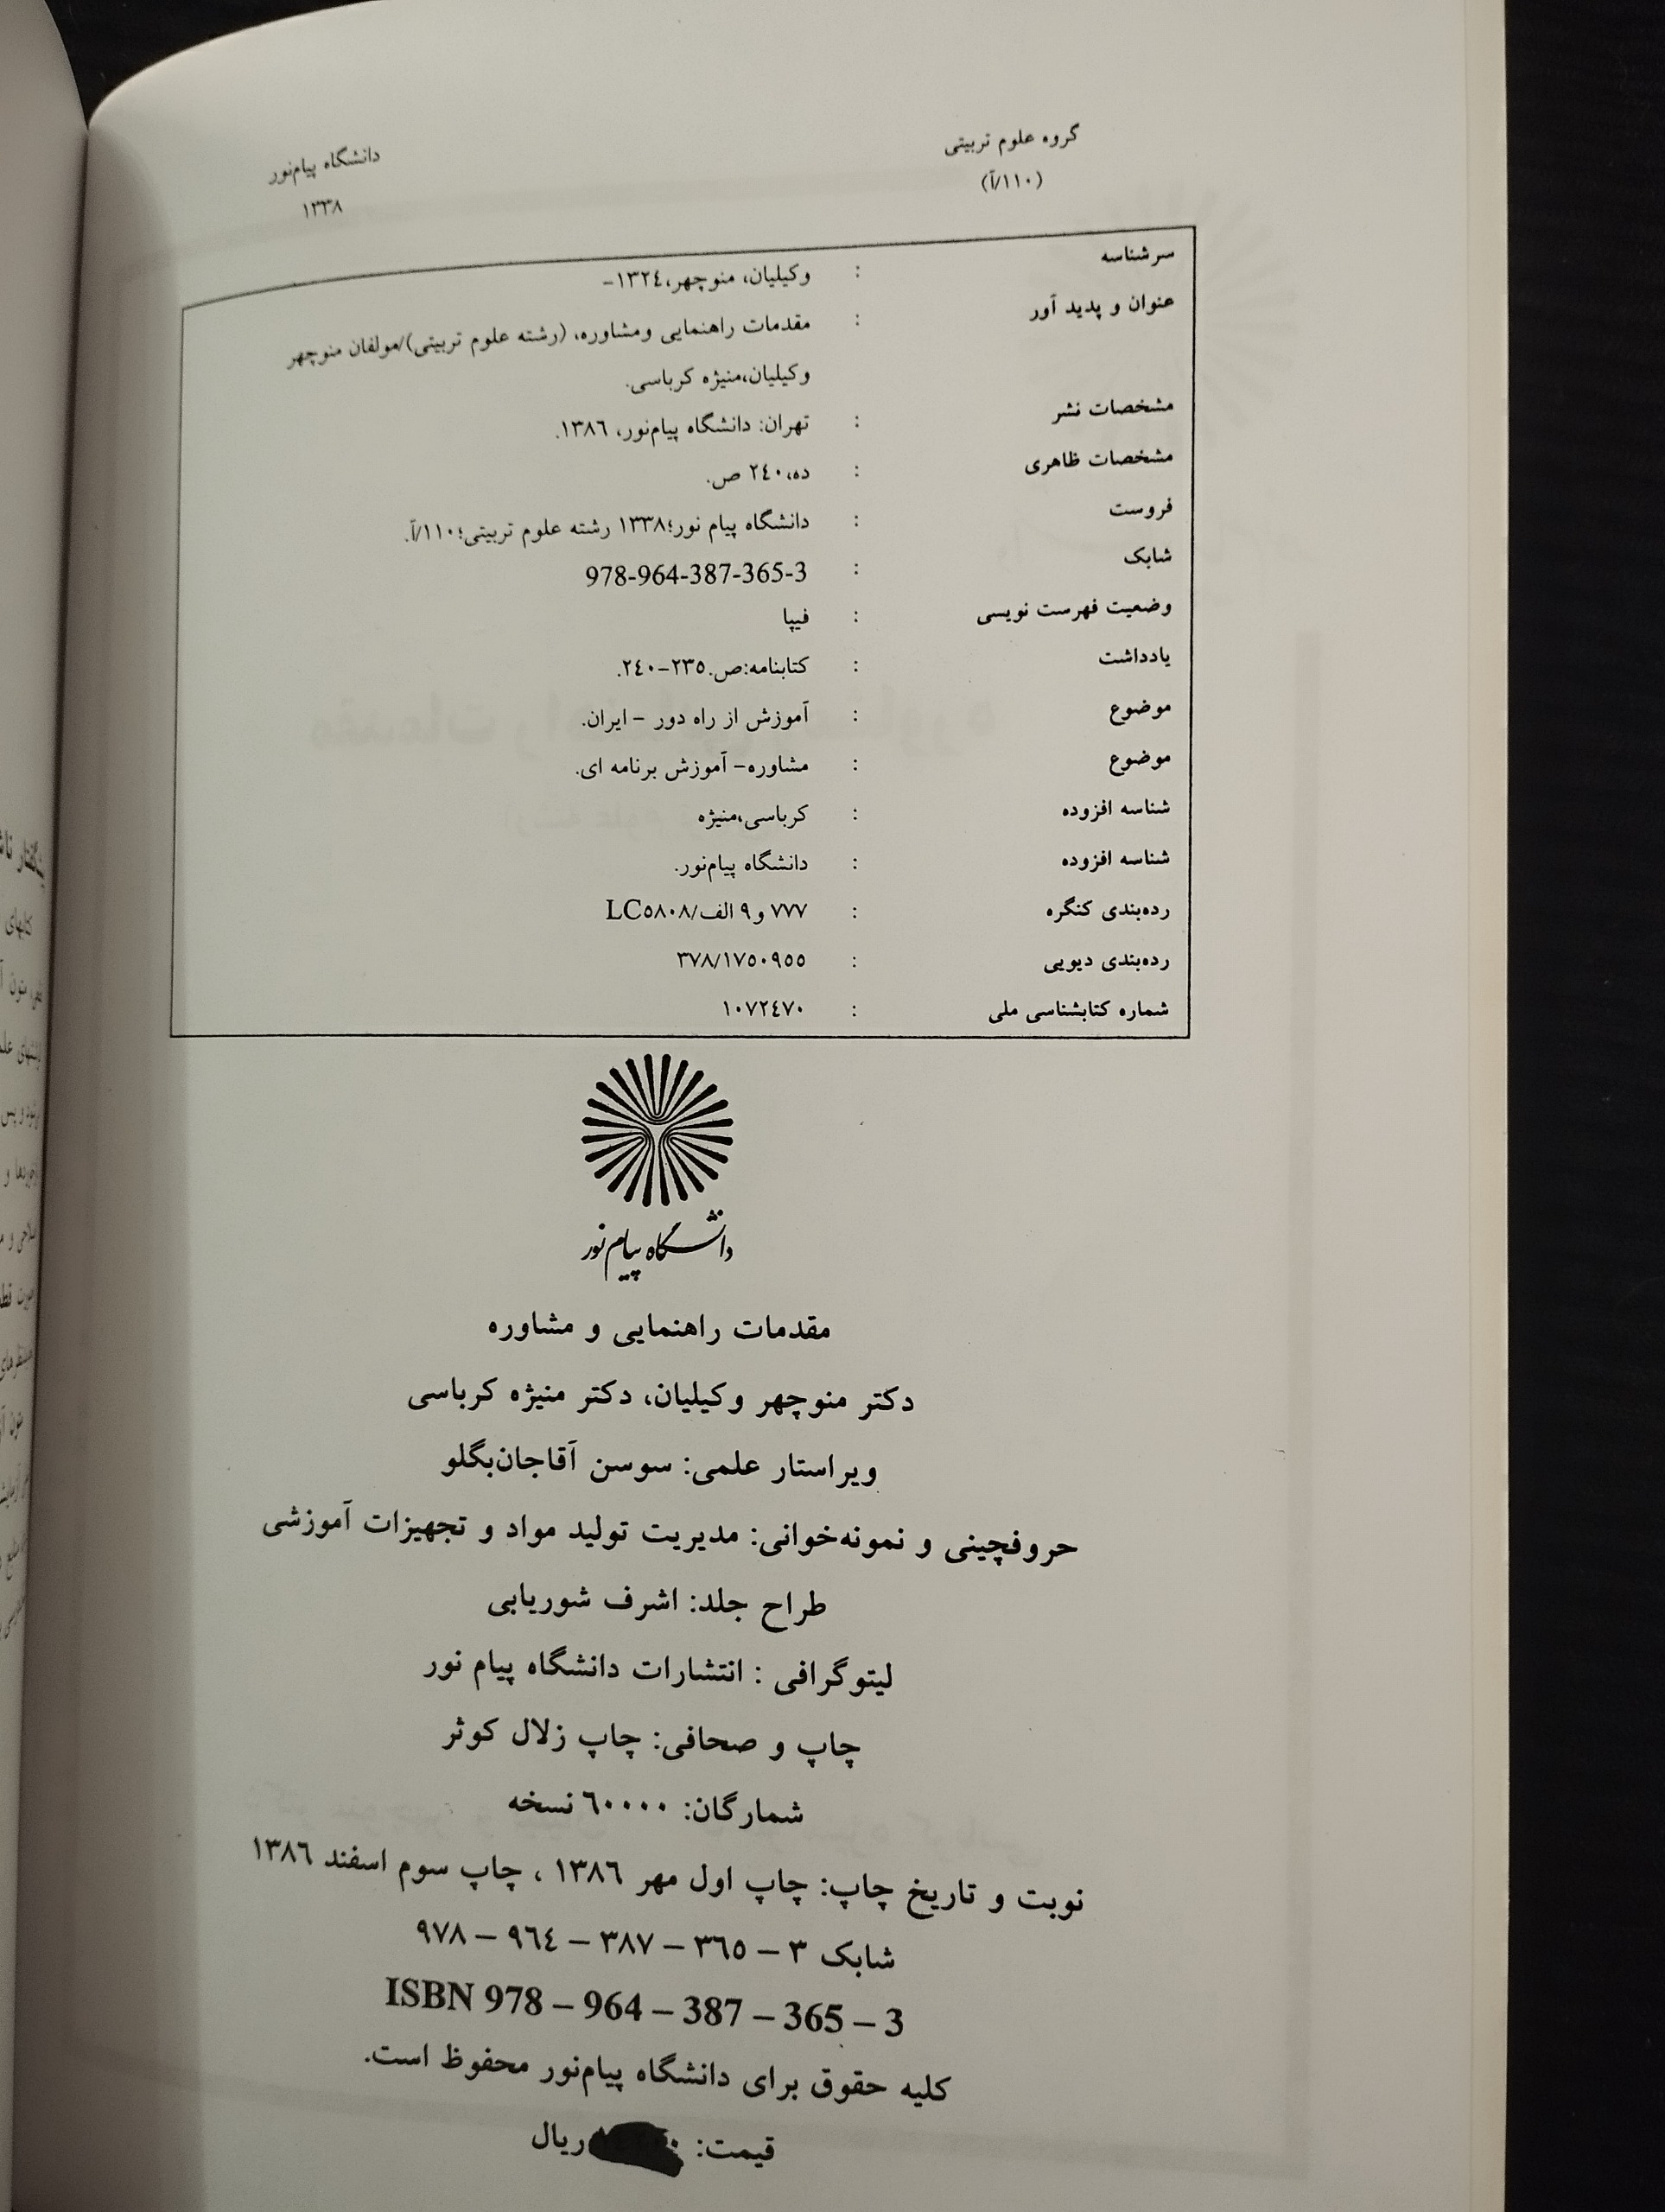 گروه علوم تربیتی
(۱۱۰/آ)
دانشگاه پیام‌نور
۱۳۳۸
سرشناسه : وکیلیان، منوچهر،۱۳۲٤-
عنوان و پدید آور : مقدمات راهنمایی ومشاوره، (رشته علوم تربیتی)/مولفان منوچهر
وکیلیان،منیژه کرباسی.
مشخصات نشر : تهران: دانشگاه پیام‌نور، ۱۳۸٦.
مشخصات ظاهری : ده،۲٤۰ ص.
فروست : دانشگاه پیام نور؛۱۳۳۸ رشته علوم تربیتی؛۱۱۰/آ.
شابک : 978-964-387-365-3
وضعیت فهرست نویسی : فیپا
یادداشت : کتابنامه:ص.۲۳۵-۲٤۰.
موضوع : آموزش از راه دور - ایران.
موضوع : مشاوره- آموزش برنامه ای.
شناسه افزوده : کرباسی،منیژه
شناسه افزوده : دانشگاه پیام‌نور.
رده‌بندی کنگره : ۷۷۷ و ۹ الف/LC۵۸۰۸
رده‌بندی دیویی : ۳۷۸/۱۷۵۰۹۵۵
شماره کتابشناسی ملی : ۱۰۷۲٤۷۰
دانشگاه پیام نور
مقدمات راهنمایی و مشاوره
دکتر منوچهر وکیلیان، دکتر منیژه کرباسی
ویراستار علمی: سوسن آقاجان‌بگلو
حروفچینی و نمونه‌خوانی: مدیریت تولید مواد و تجهیزات آموزشی
طراح جلد: اشرف شوریابی
لیتوگرافی : انتشارات دانشگاه پیام نور
چاپ و صحافی: چاپ زلال کوثر
شمارگان: ٦۰۰۰۰ نسخه
نوبت و تاریخ چاپ: چاپ اول مهر ۱۳۸٦ ، چاپ سوم اسفند ۱۳۸٦
شابک ۳ – ۳٦۵ – ۳۸۷ – ۹٦٤ – ۹۷۸
ISBN 978 – 964 – 387 – 365 – 3
کلیه حقوق برای دانشگاه پیام‌نور محفوظ است.
قیمت: ریال